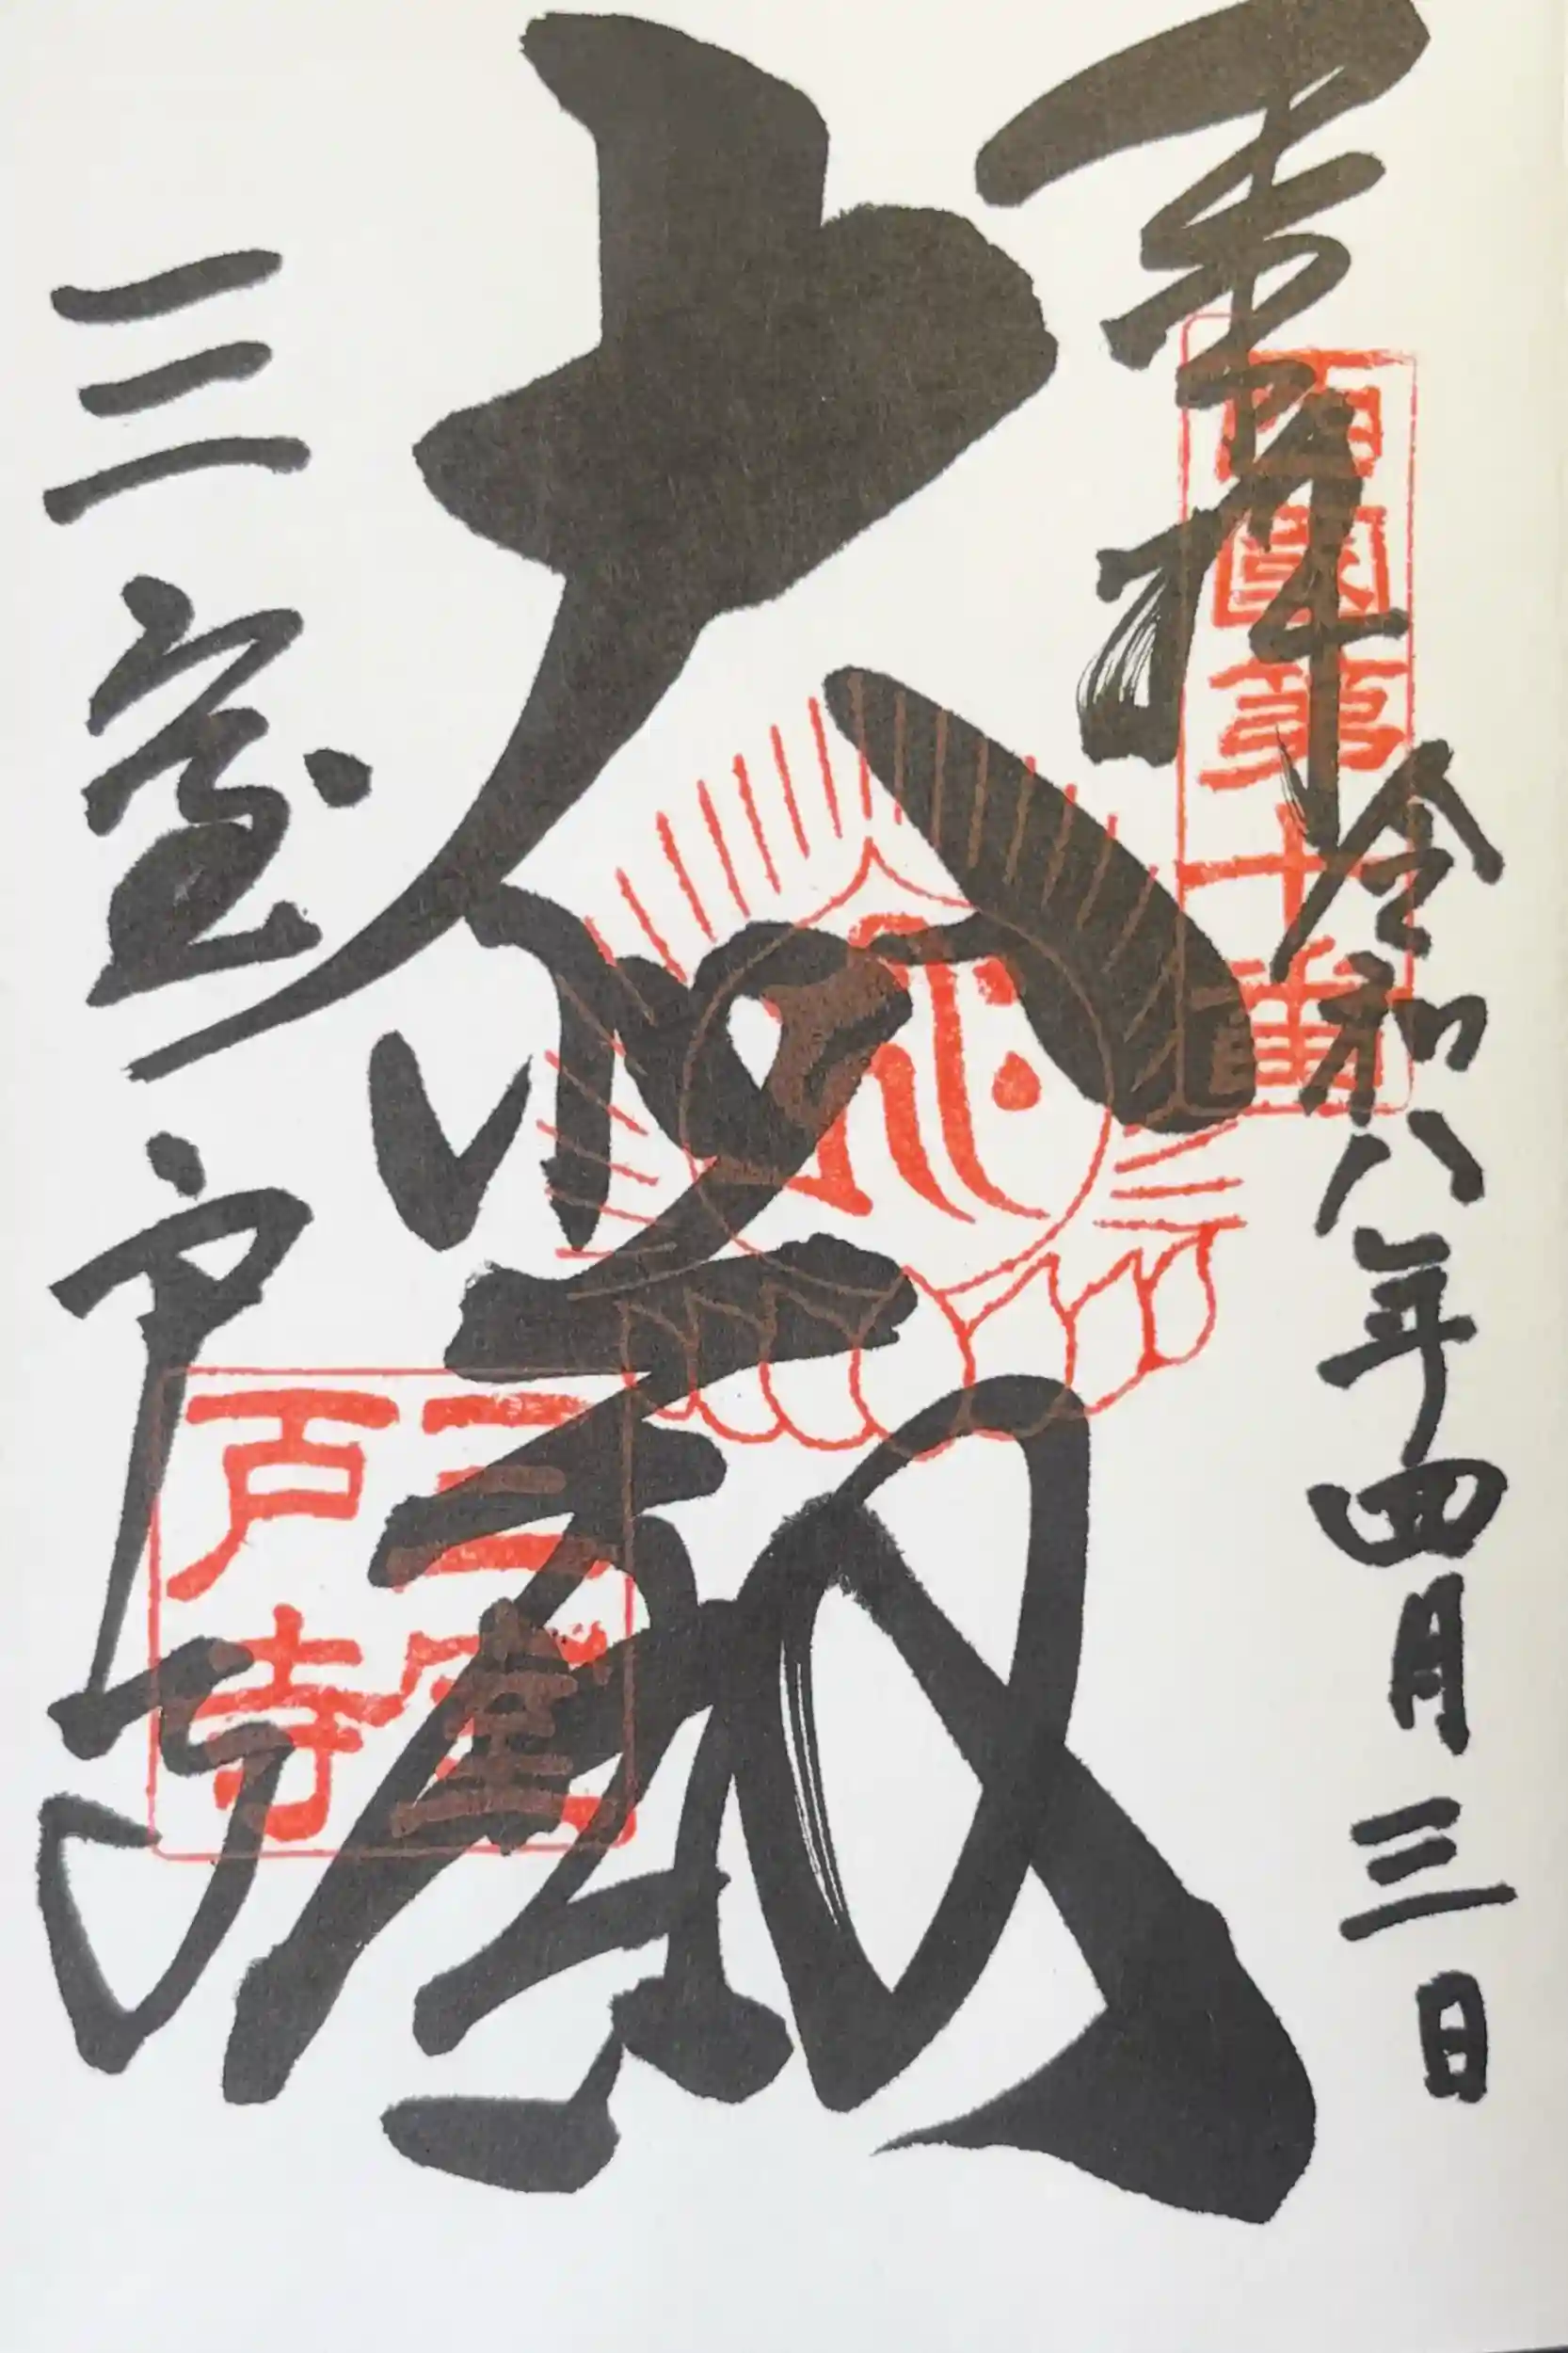 奉拝
西國第十番
令和八年四月三日
大悲殿
三室戸寺
三室戸寺